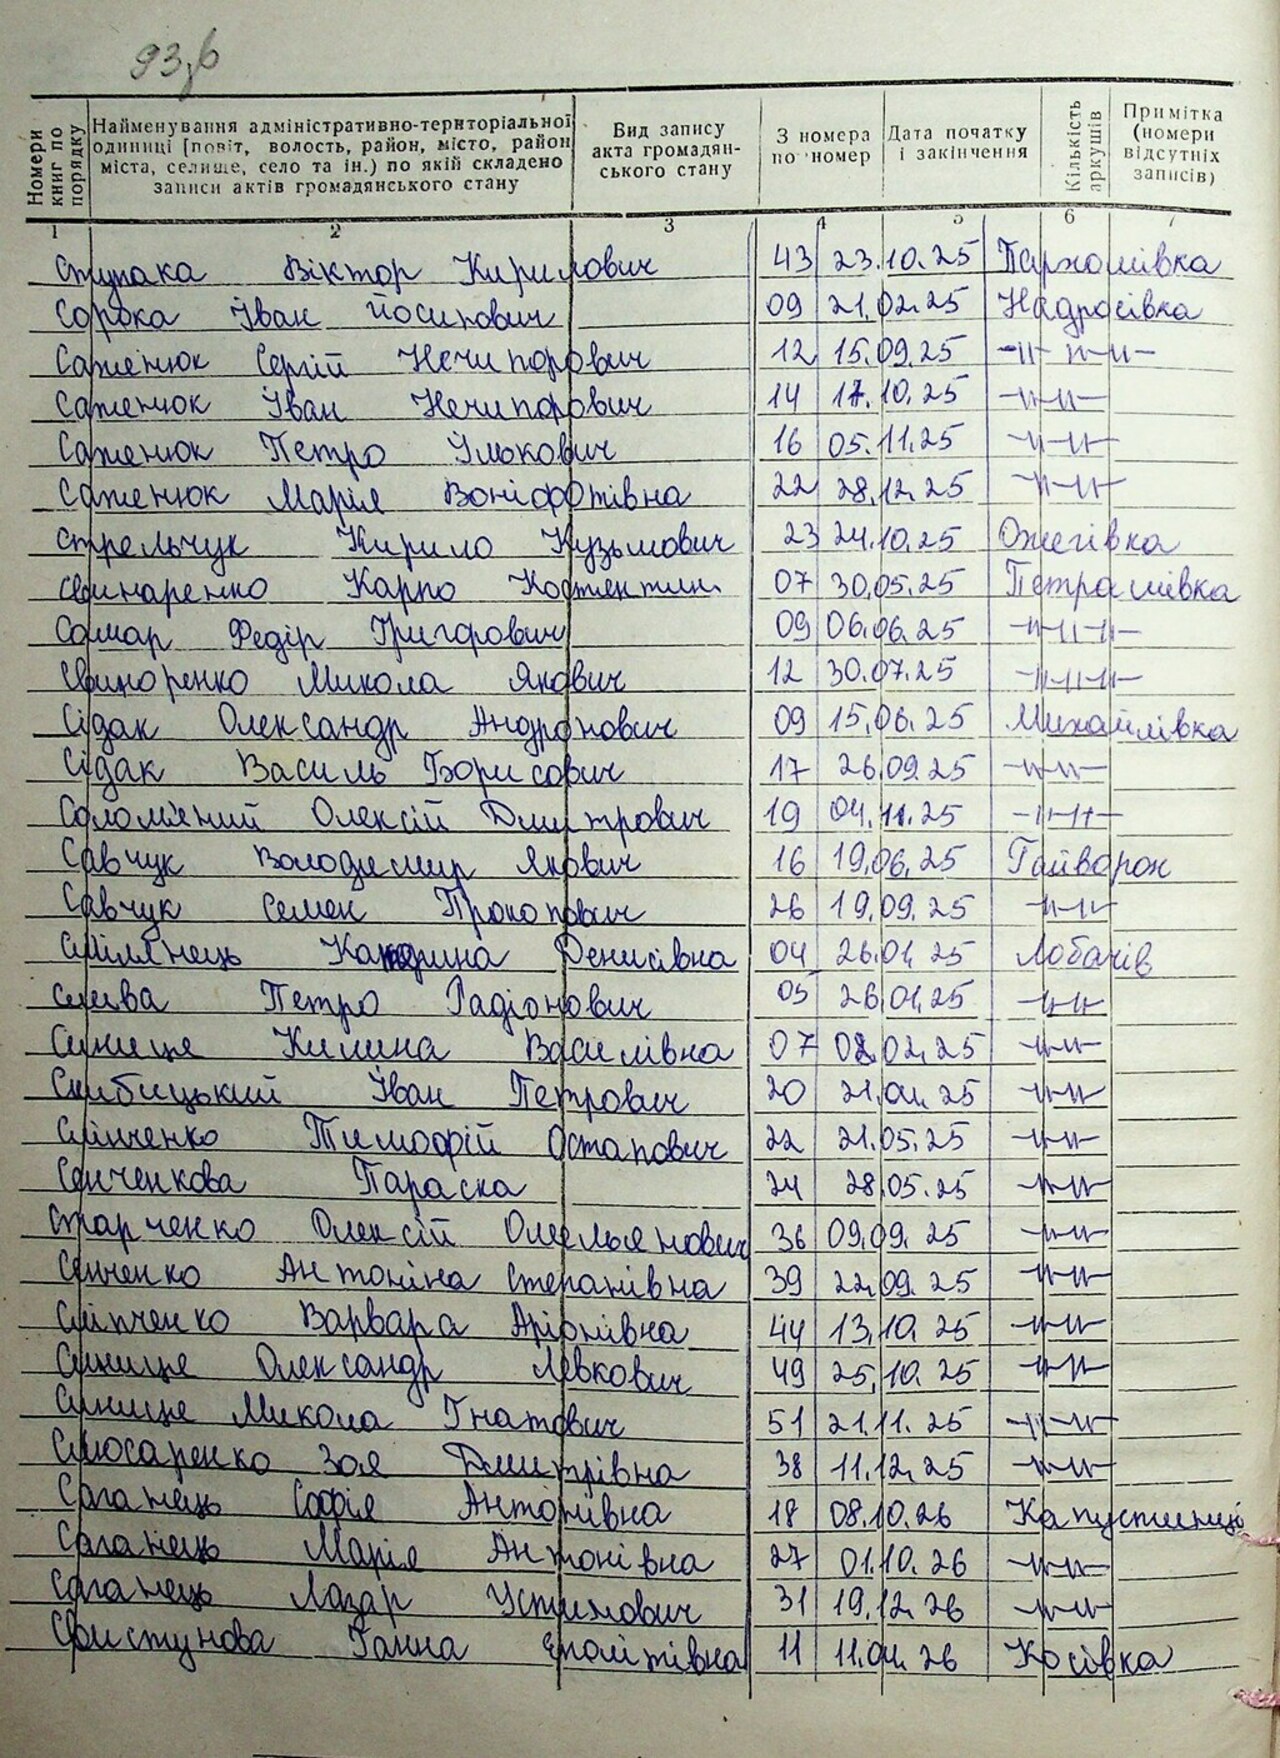 93,б
Номери книг по порядку
Найменування адміністративно-територіальної одиниці (повіт, волость, район, місто, район міста, селище, село та ін.) по якій складено записи актів громадянського стану
Вид запису акта громадянського стану
З номера по номер
Дата початку і закінчення
Кількість аркушів
Примітка (номери відсутніх записів)
1 2 3 4 5 6 7
Ступака Віктор Кирилович 43 23.10.25 Пархомівка
Сорока Іван Йосипович 09 21.02.25 Надросівка
Саженюк Сергій Нечипорович 12 15.09.25 -〃- 〃-〃-
Саженюк Іван Нечипорович 14 17.10.25 -〃-〃-
Саженюк Петро Ількович 16 05.11.25 -〃-〃-
Саженюк Марія Воніфатівна 22 28.12.25 -〃-〃-
Стрельчук Кирило Кузьмович 23 24.10.25 Ожегівка
Свинаренко Карпо Костентин. 07 30.05.25 Петрашівка
Сомар Федір Григорович 09 06.06.25 -〃-〃-〃-
Свиноренко Микола Якович 12 30.07.25 -〃-〃-〃-
Сідак Олександр Андронович 09 15.06.25 Михайлівка
Сідак Василь Борисович 17 26.09.25 -〃-〃-
Солом'яний Олексій Дмитрович 19 04.11.25 -〃-〃-
Савчук Володимир Якович 16 19.06.25 Гайворон
Савчук Семен Прокопович 26 19.09.25 -〃-〃-
Смілянець Катерина Денисівна 04 26.01.25 Лобачів
Слива Петро Радіонович 05 26.01.25 -〃-〃-
Синице Килина Василівна 07 02.02.25 -〃-〃-
Скибицький Іван Петрович 20 21.04.25 -〃-〃-
Сліпченко Тимофій Остапович 22 21.05.25 -〃-〃-
Сенченкова Параска 24 28.05.25 -〃-〃-
Старченко Олексій Омельянович 36 09.09.25 -〃-〃-
Сенченко Антоніна Степанівна 39 22.09.25 -〃-〃-
Сліпченко Варвара Аріонівна 44 13.10.25 -〃-〃-
Синице Олександр Левкович 49 25.10.25 -〃-〃-
Синице Микола Гнатович 51 21.11.25 -〃-〃-
Слюсаренко Зоя Дмитрівна 38 11.12.25 -〃-〃-
Саганець Софія Антонівна 18 08.10.26 Капустинці
Саганець Марія Антонівна 27 01.10.26 -〃-〃-
Саганець Лазар Устимович 31 19.12.26 -〃-〃-
Свистунова Ганна Єполітівна 11 11.04.26 Косівка